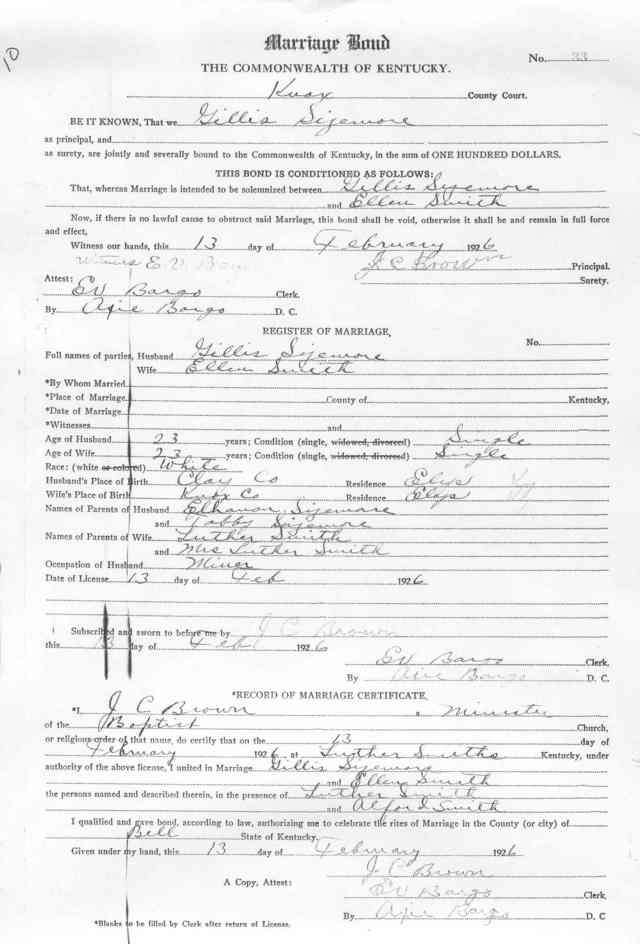 10
Marriage Bond
No. 33
THE COMMONWEALTH OF KENTUCKY.
Knox County Court.
BE IT KNOWN, That we Gillis Sizemore
as principal, and
as surety, are jointly and severally bound to the Commonwealth of Kentucky, in the sum of ONE HUNDRED DOLLARS.
THIS BOND IS CONDITIONED AS FOLLOWS:
That, whereas Marriage is intended to be solemnized between Gillis Sizemore
and Ellen Smith
Now, if there is no lawful cause to obstruct said Marriage, this bond shall be void, otherwise it shall be and remain in full force
and effect,
Witness our hands, this 13 day of February 1926
Witness E V
J. C Brown Principal.
Surety.
Attest:
EV Bargo Clerk.
By Axie Bargo D. C.
REGISTER OF MARRIAGE,
No.
Full names of parties, Husband Gillis Sizemore
Wife Ellen Smith
*By Whom Married
*Place of Marriage County of Kentucky,
*Date of Marriage
*Witnesses and
Age of Husband 23 years; Condition (single, widowed, divorced) Single
Age of Wife 23 years; Condition (single, widowed, divorced) Single
Race: (white or colored) White
Husband's Place of Birth Clay Co Residence Elys Ky
Wife's Place of Birth Knox Co Residence Elys
Names of Parents of Husband Elhanon Sizemore
and Tabby Sizemore
Names of Parents of Wife Luther Smith
and Mrs Luther Smith
Occupation of Husband Miner
Date of License 13 day of Feb 1926
Subscribed and sworn to before me by J C Brown
this 13 day of Feb 1926
EV Bargo Clerk.
By Axie Bargo D. C.
*RECORD OF MARRIAGE CERTIFICATE,
*I, J C Brown a Minister
of the Baptist Church,
or religious order of that name, do certify that on the 13 day of
February 1926 at Luther Smiths Kentucky, under
authority of the above license, I united in Marriage Gillis Sizemore
and Ellen Smith
the persons named and described therein, in the presence of Luther Smith
and Alford Smith
I qualified and gave bond, according to law, authorizing me to celebrate the rites of Marriage in the County (or city) of
Bell State of Kentucky.
Given under my hand, this 13 day of February 1926
J. C Brown
A Copy, Attest: EV Bargo Clerk,
By Axie Bargo D. C
*Blanks to be filled by Clerk after return of License.